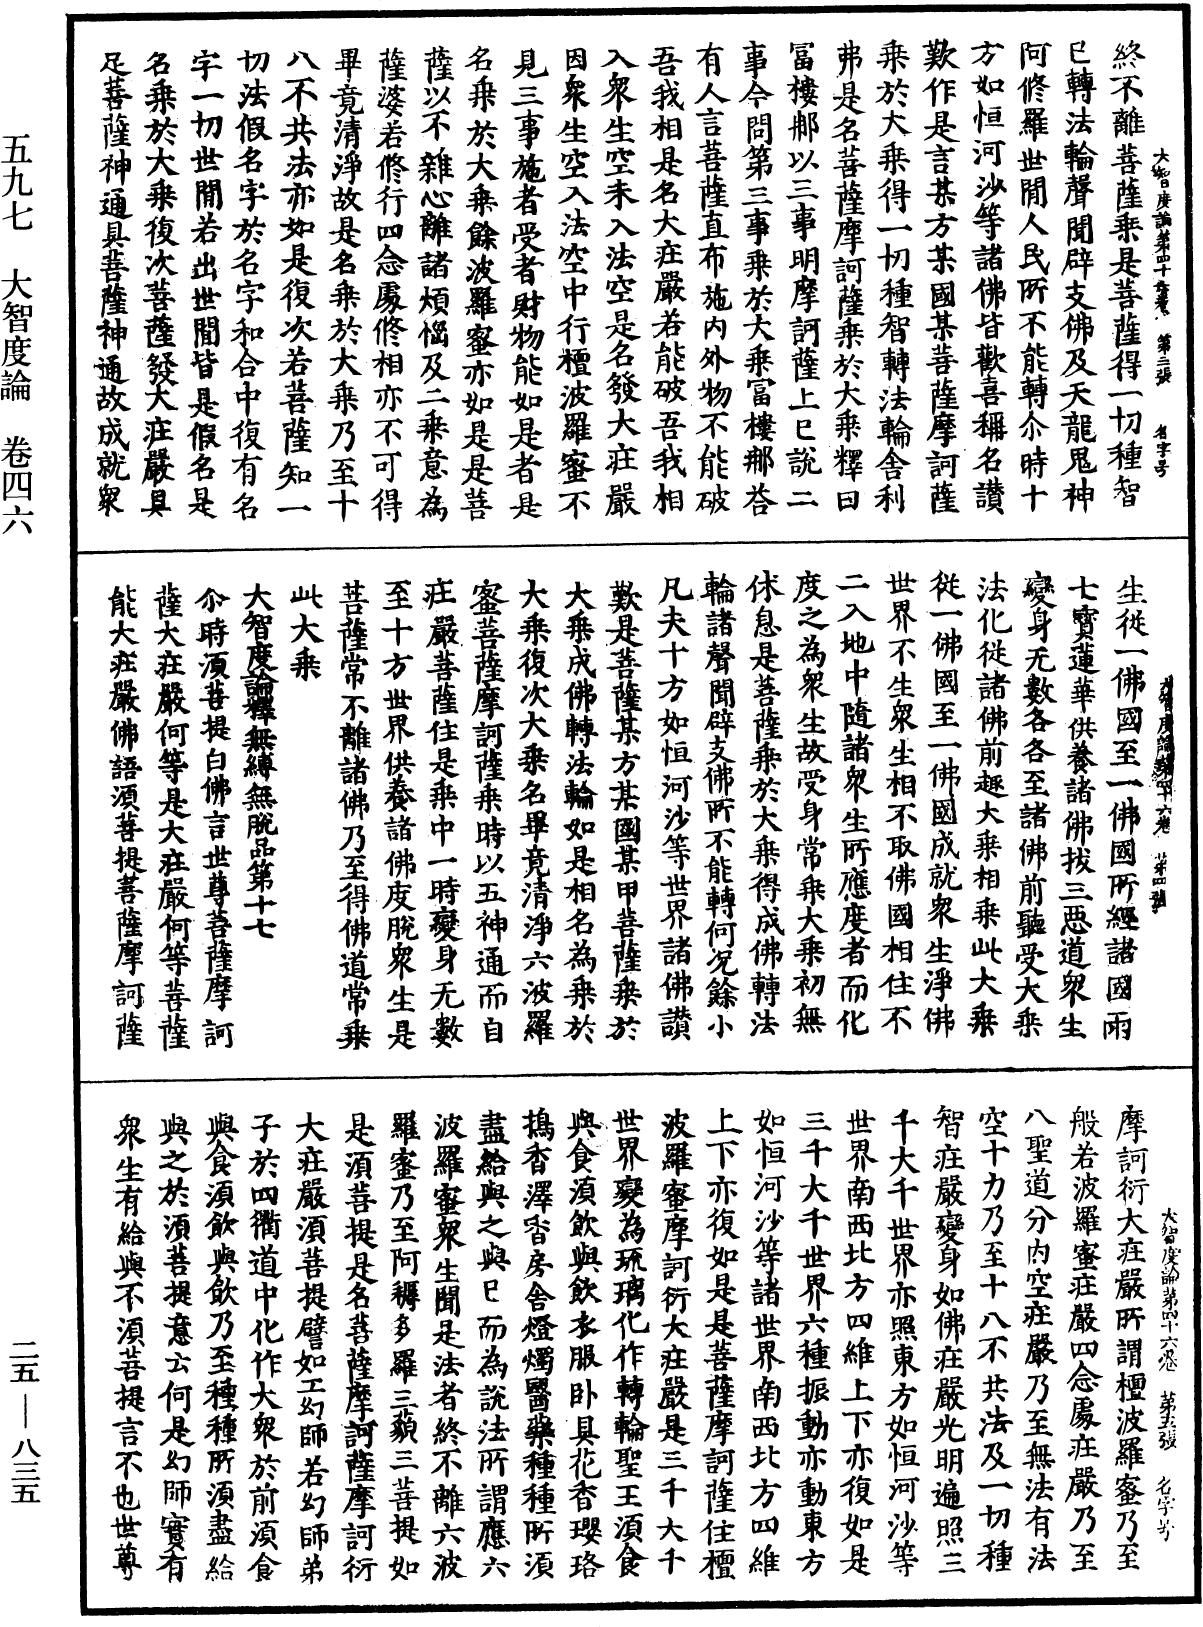 大智度論第四十六卷　第三張　名字号
終不離菩薩乘是菩薩得一切種智
巳轉法輪聲聞辟支佛及天龍鬼神
阿修羅世間人民所不能轉尒時十
方如恒河沙等諸佛皆歡喜稱名讃
歎作是言某方某國某菩薩摩訶薩
乘於大乘得一切種智轉法輪舍利
弗是名菩薩摩訶薩乘於大乘釋曰
富樓那以三事明摩訶薩上巳說二
事今問第三事乘於大乘富樓那荅
有人言菩薩直布施內外物不能破
吾我相是名大莊嚴若能破吾我相
入衆生空未入法空是名發大莊嚴
因衆生空入法空中行檀波羅蜜不
見三事施者受者財物能如是者是
名乘於大乘餘波羅蜜亦如是是菩
薩以不雜心離諸煩惱及二乘意為
薩婆若修行四念處修相亦不可得
畢竟清淨故是名乘於大乘乃至十
八不共法亦如是復次若菩薩知一
切法假名字於名字和合中復有名
字一切世間若出世間皆是假名是
名乘於大乘復次菩薩發大莊嚴具
足菩薩神通具菩薩神通故成就衆
大智度論第四十六卷　第四張
生從一佛國至一佛國所經諸國雨
七寶蓮華供養諸佛拔三惡道衆生
變身无數各各至諸佛前聽受大乘
法化從諸佛前趣大乘相乘此大乘
從一佛國至一佛國成就衆生淨佛
世界不生衆生相不取佛國相住不
二入地中隨諸衆生所應度者而化
度之為衆生故受身常乘大乘初無
休息是菩薩乘於大乘得成佛轉法
輪諸聲聞辟支佛所不能轉何况餘小
凡夫十方如恒河沙等世界諸佛讃
歎是菩薩某方某國某甲菩薩乘於
大乘成佛轉法輪如是相名為乘於
大乘復次大乘名畢竟清淨六波羅
蜜菩薩摩訶薩乘時以五神通而自
莊嚴菩薩住是乘中一時變身无數
至十方世界供養諸佛度脫衆生是
菩薩常不離諸佛乃至得佛道常乘
此大乘
大智度論釋無縛無脫品第十七
尒時湏菩提白佛言世尊菩薩摩訶
薩大莊嚴何等是大莊嚴何等菩薩
能大莊嚴佛語湏菩提菩薩摩訶薩
大智度論第四十六卷　第五張　名字号
摩訶衍大莊嚴所謂檀波羅蜜乃至
般若波羅蜜莊嚴四念處莊嚴乃至
八聖道分內空莊嚴乃至無法有法
空十力乃至十八不共法及一切種
智莊嚴變身如佛莊嚴光明遍照三
千大千世界亦照東方如恒河沙等
世界南西北方四維上下亦復如是
三千大千世界六種振動亦動東方
如恒河沙等諸世界南西北方四維
上下亦復如是是菩薩摩訶薩住檀
波羅蜜摩訶衍大莊嚴是三千大千
世界變為琉璃化作轉輪聖王湏食
與食湏飲與飲衣服卧具花香瓔珞
搗香澤香房舍燈燭醫藥種種所湏
盡給與之與巳而為說法所謂應六
波羅蜜衆生聞是法者終不離六波
羅蜜乃至阿耨多羅三藐三菩提如
是湏菩提是名菩薩摩訶薩摩訶衍
大莊嚴湏菩提譬如工幻師若幻師弟
子於四衢道中化作大衆於前湏食
與食湏飲與飲乃至種種所湏盡給
與之於湏菩提意云何是幻師實有
衆生有給與不湏菩提言不也世尊
五九七　大智度論　卷四六
二五—八三五